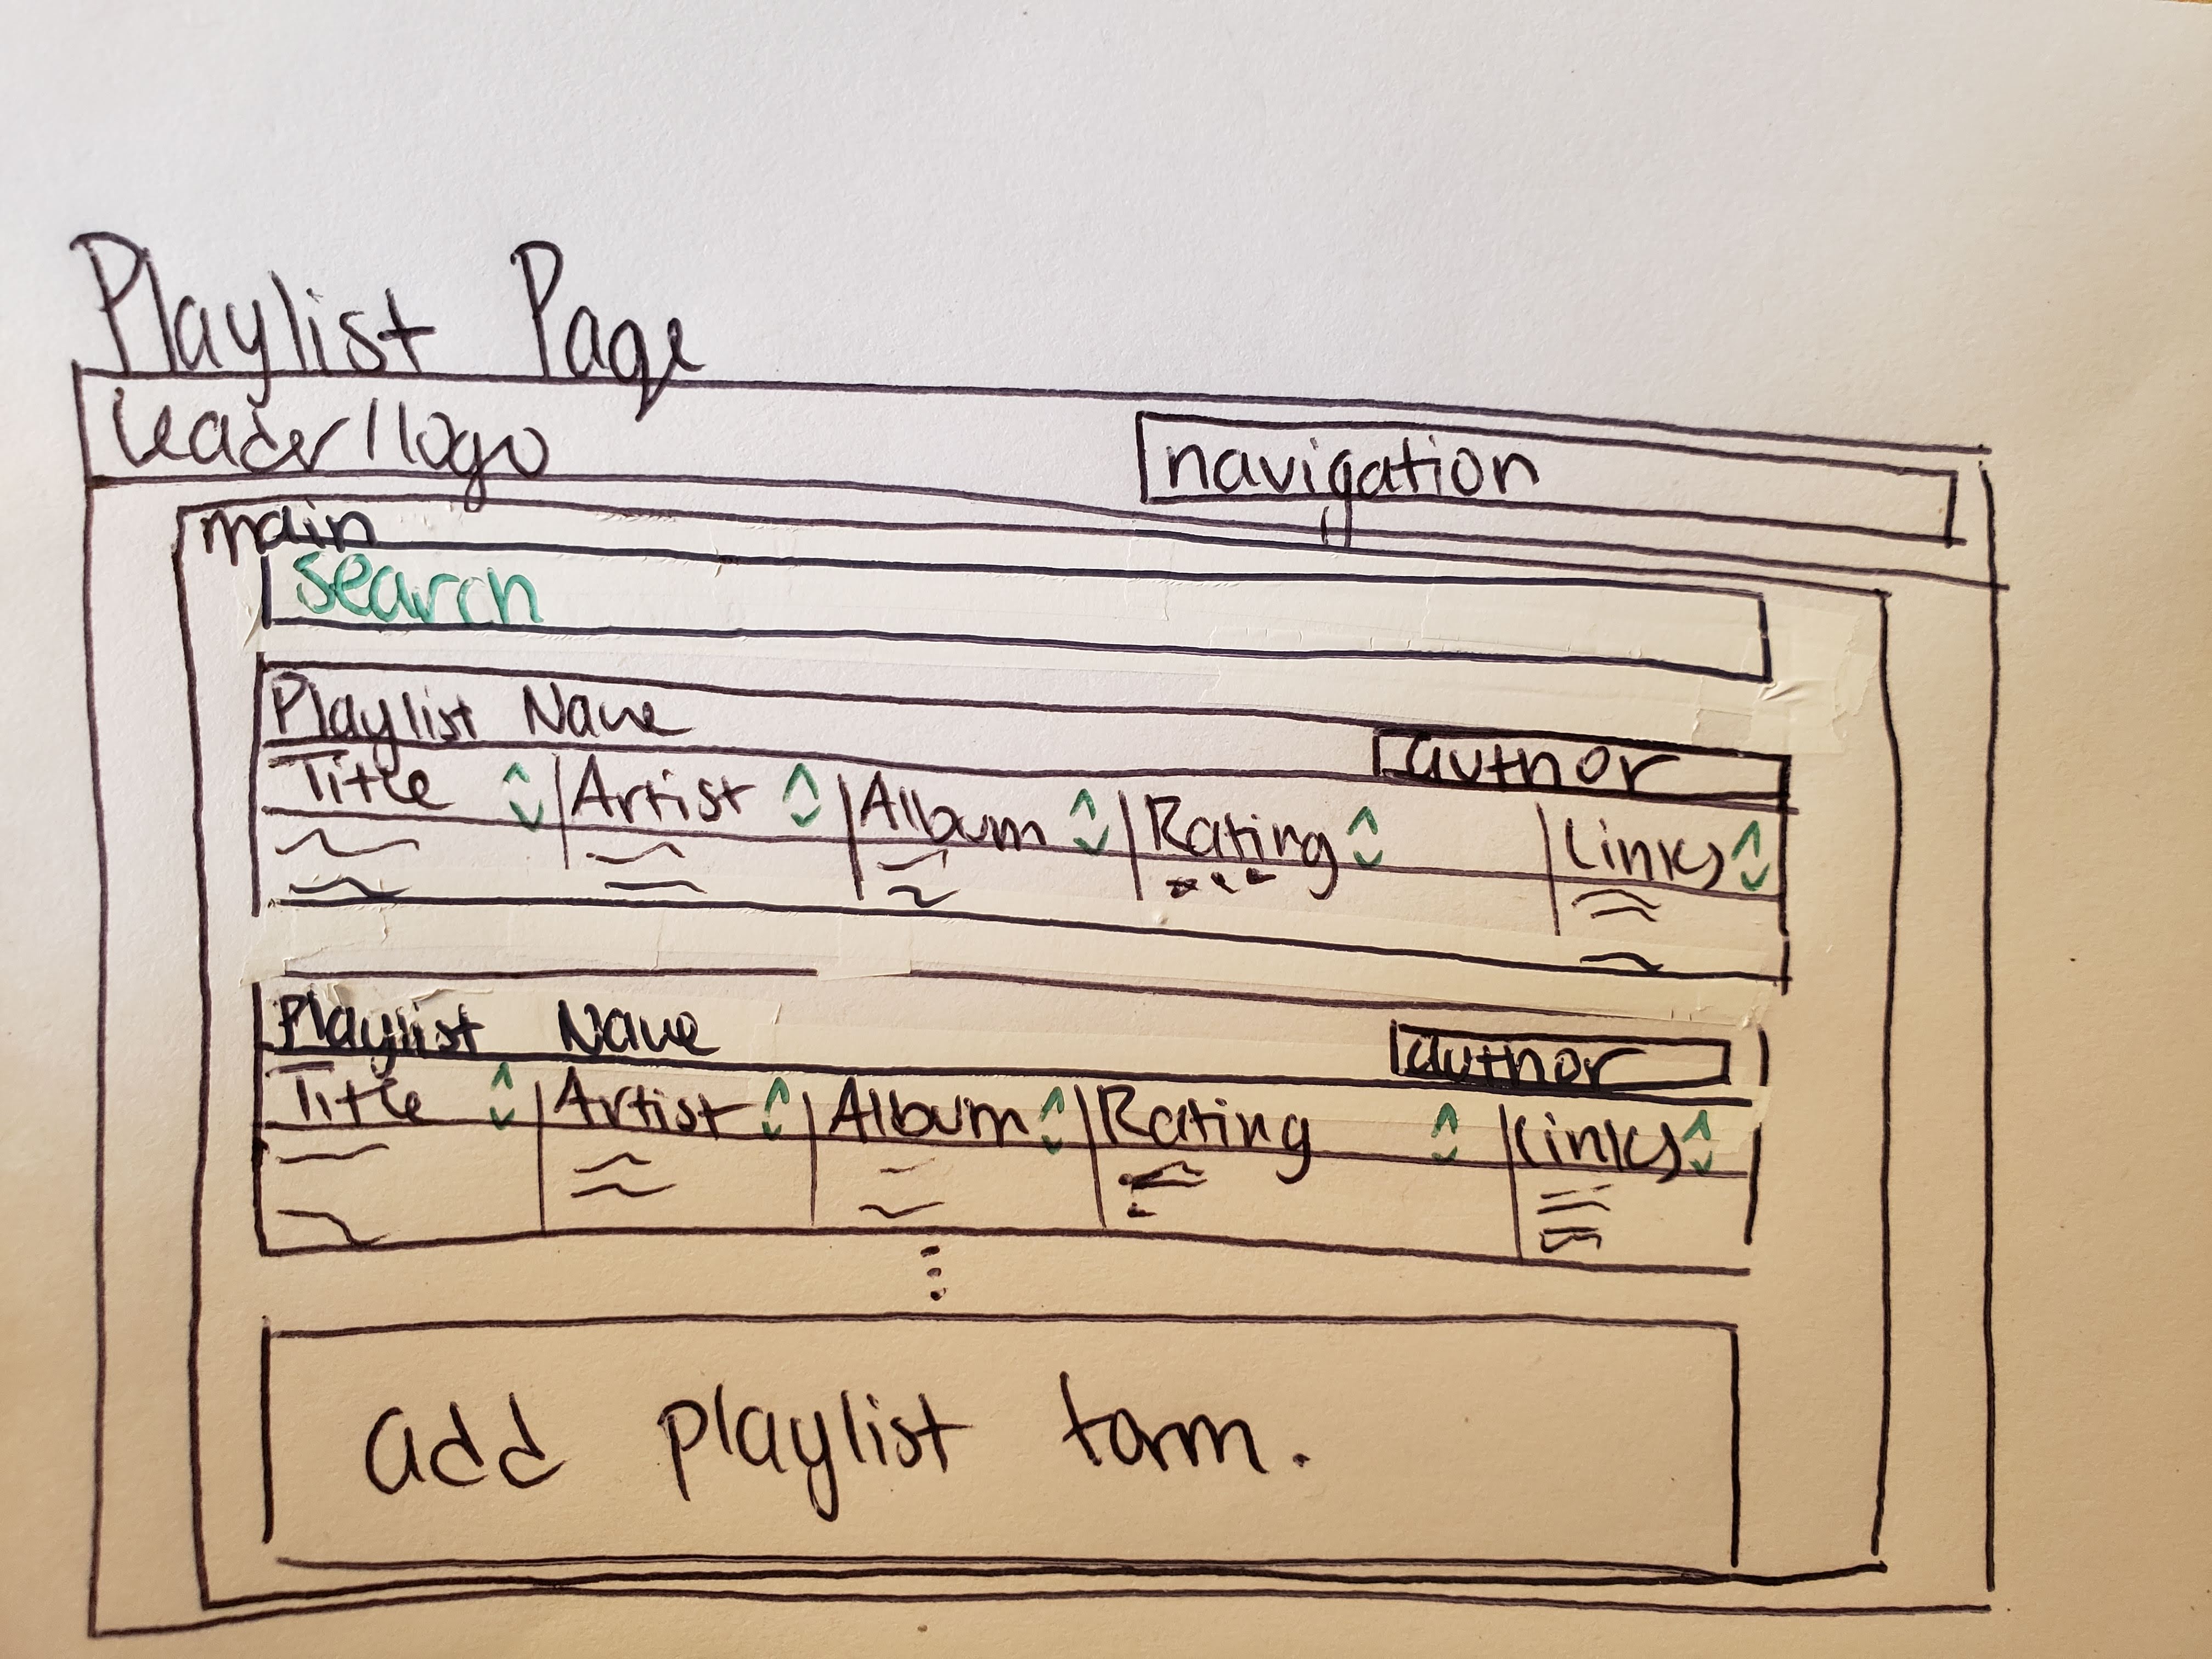 Playlist Page
header/logo
navigation
main
search
Playlist Name
author
Title Artist Album Rating Links
Playlist Name
author
Title Artist Album Rating Links
add playlist form.